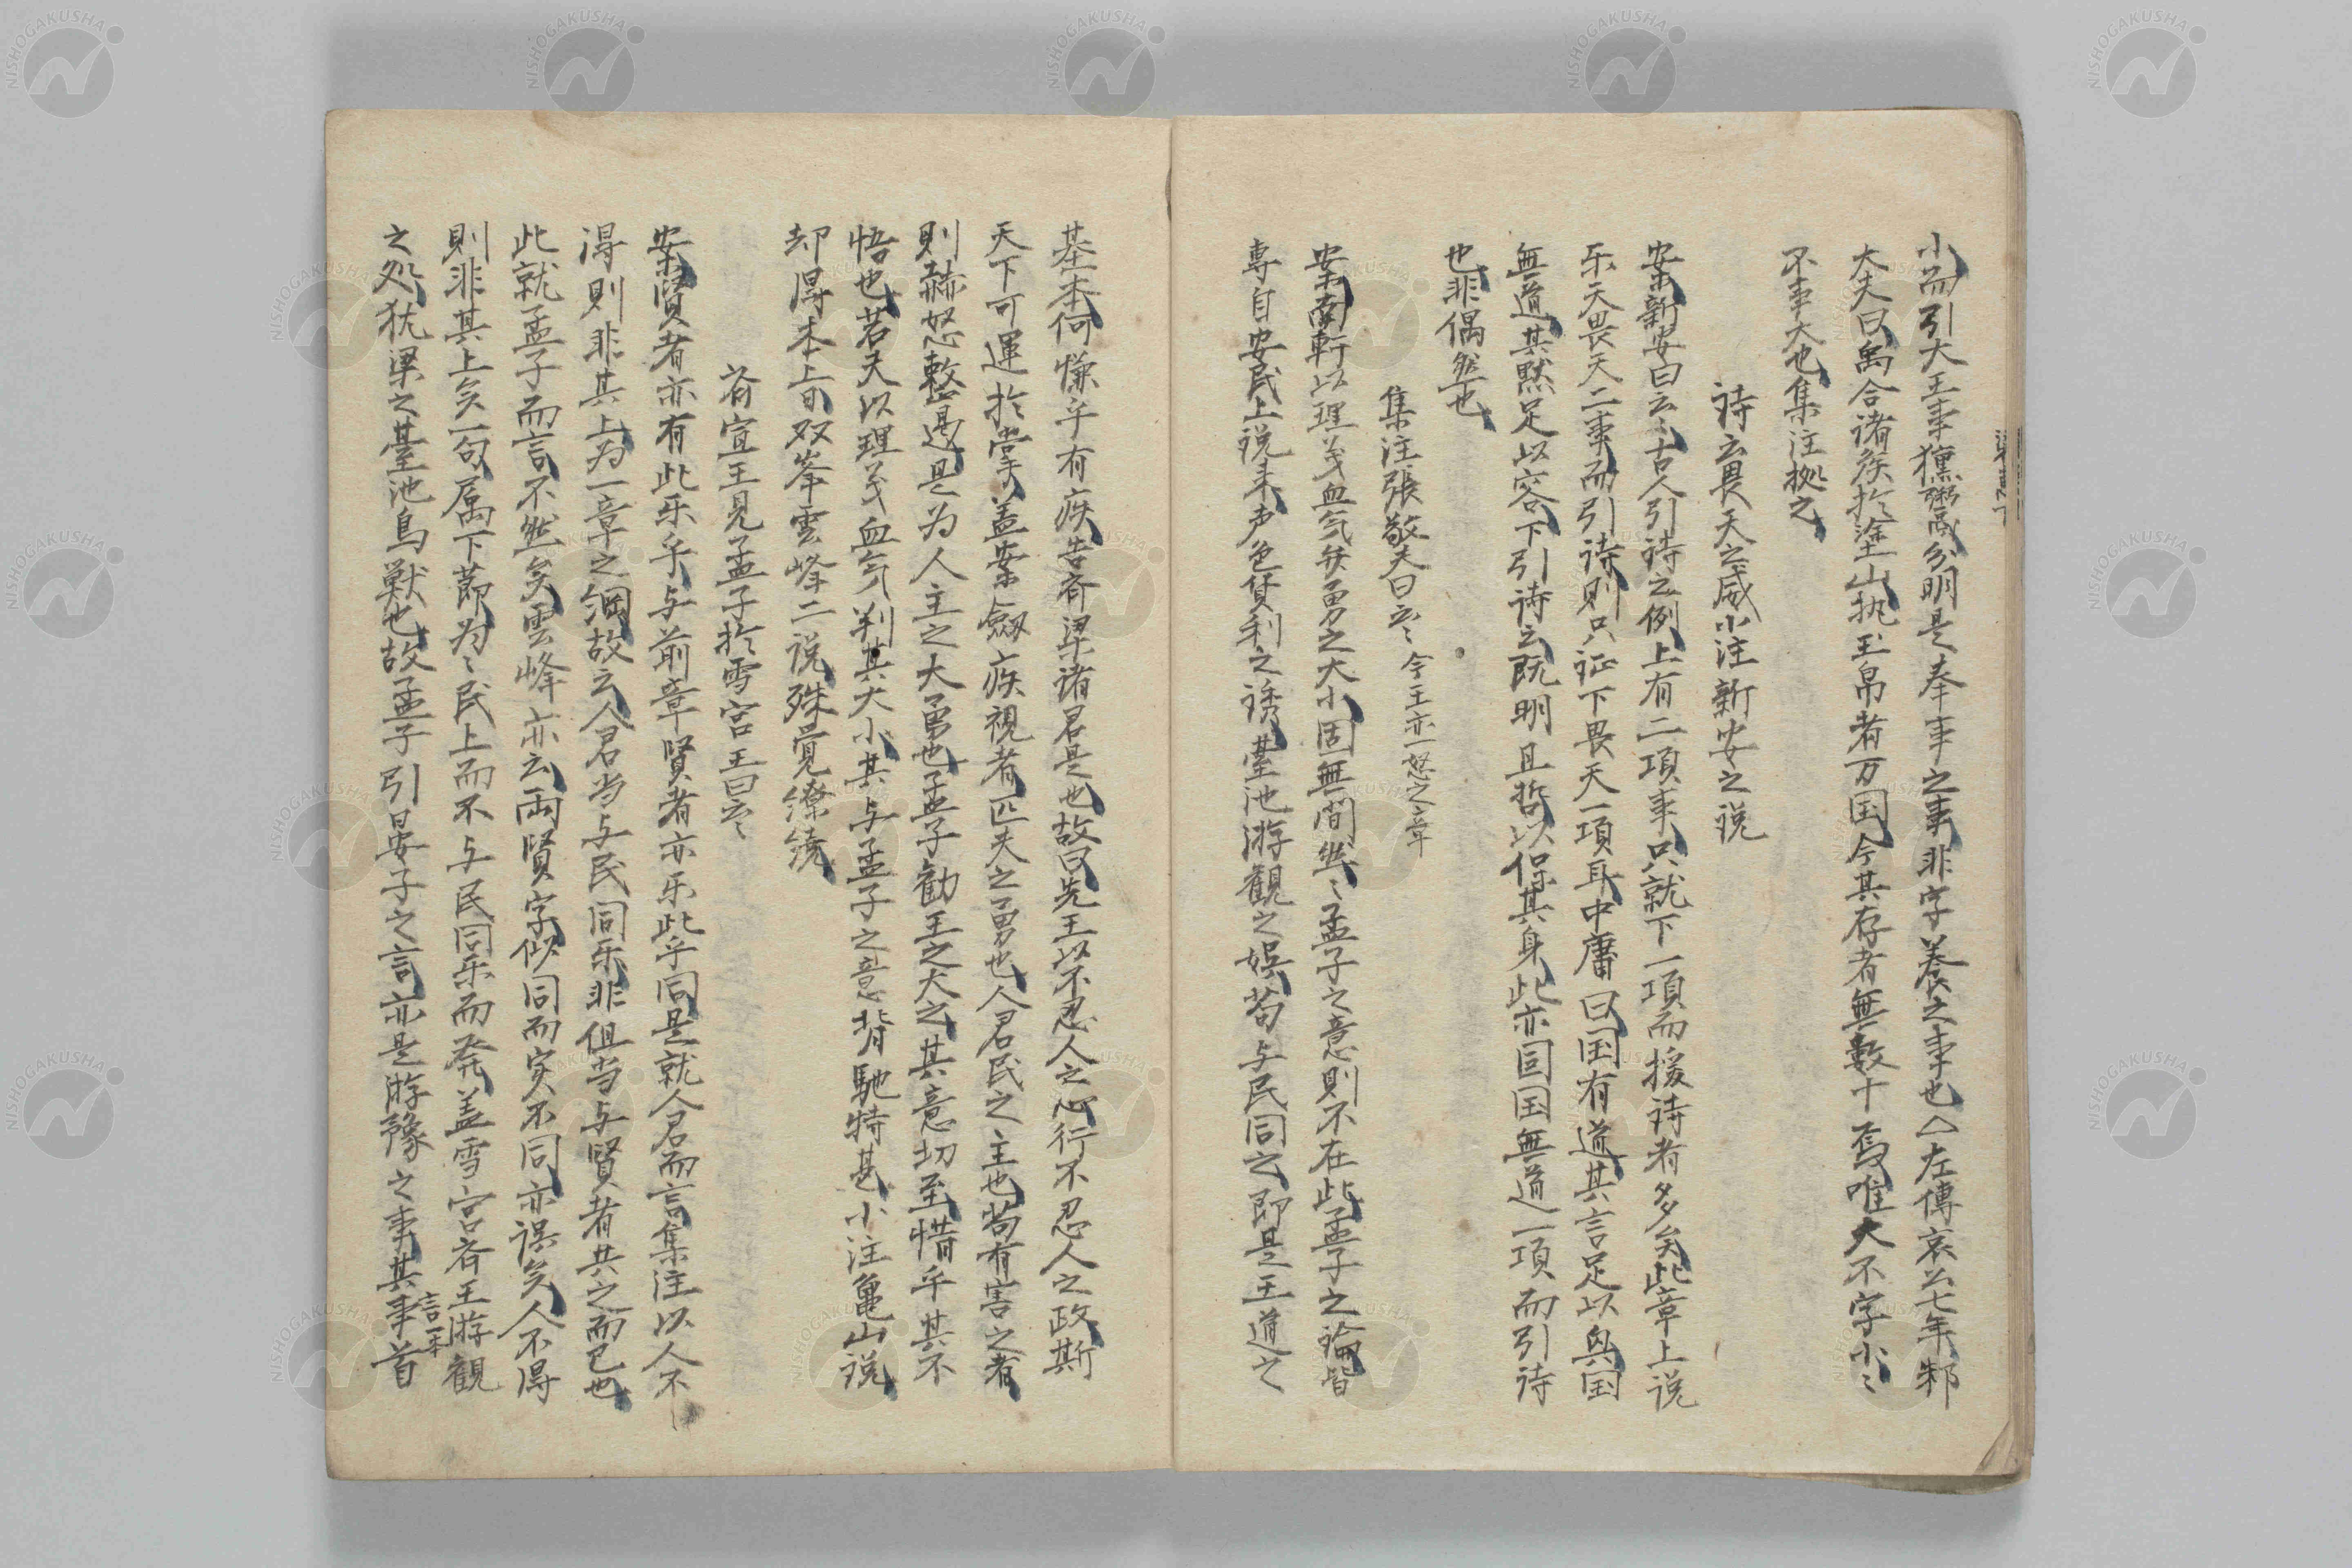 梁惠下
小而引大王事獯鬻分明是奉事之事非字養之事也△左傳哀公七年邾
大夫曰禹合諸侯於塗山执玉帛者万国今其存者無數十焉唯大不字小〻
不事大也集注拠之
詩云畏天之威小注新安之说
案新安曰云〻古人引詩之例上有二項事只就下一項而援詩者多矣此章上说
乐天畏天二事而引诗則只证下畏天一項耳中庸曰国有道其言足以興国
無道其黙足以容下引诗云既明且哲以保其身此亦囙国無道一項而引诗
也非偶然也
集注張敬夫曰云〻今王亦一怒之章
案南軒以理義血気弁勇之大小固無間然〻孟子之意則不在此孟子之論皆
專自安民上说来声色貨利之誘臺池游観之娯苟与民同之即是王道之
基本何慊乎有疾告斉梁诸君是也故曰先王以不忍人之心行不忍人之政斯
天下可運於掌盖案劔疾視者匹夫之勇也人君民之主也苟有害之者
則赫怒整遏是为人主之大勇也孟子勧王之大之其意切至惜乎其不
悟也若夫以理義血気判其大小其与孟子之意背馳特甚小注亀山说
却得本上旬双峯雲峰二说殊覚繚繞
斉宣王見孟子於雪宫王曰云〻
案賢者亦有此乐乎与前章賢者亦乐此乎同是就人君而言集注以人不
得則非其上为一章之綱故云人君当与民同乐非但当与賢者共之而已也
此就孟子而言不然矣雲峰亦云両賢字似同而实不同亦误矣人不得
則非其上矣一句属下節为〻民上而不与民同乐而発盖雪宫斉王游観
之処犹梁之臺池鳥獣也故孟子引晏子之言亦是游豫之事其事首
言一本